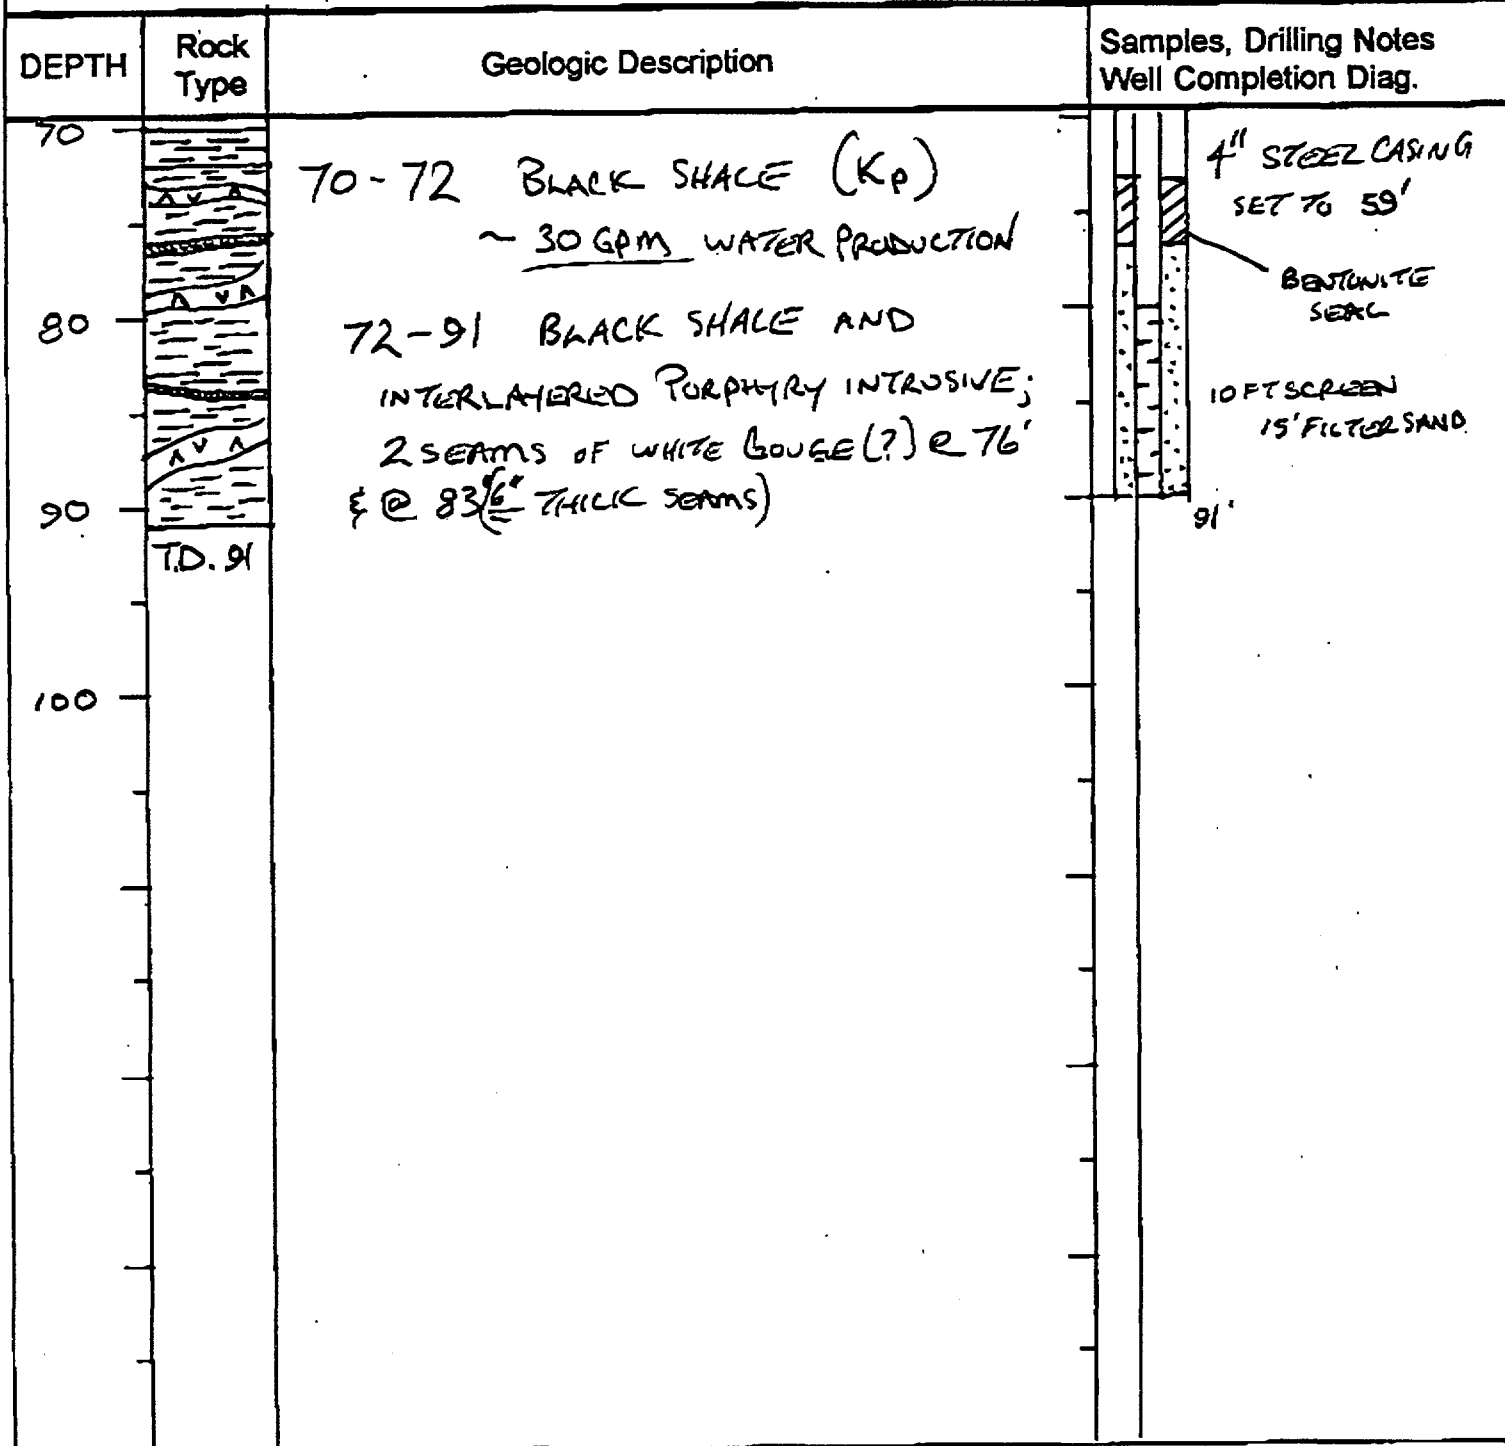 DEPTH
Rock
Type
Geologic Description
Samples, Drilling Notes
Well Completion Diag.
70
80
90
100
T.D. 91
70-72 BLACK SHALE (Kp)
~ 30 GPM WATER PRODUCTION
72-91 BLACK SHALE AND
INTERLAYERED PORPHYRY INTRUSIVE;
2 SEAMS OF WHITE GOUGE(?) @ 76'
& @ 83' (6" THICK SEAMS)
4" STEEL CASING
SET TO 59'
BENTONITE
SEAL
10 FT SCREEN
15' FILTER SAND
91'